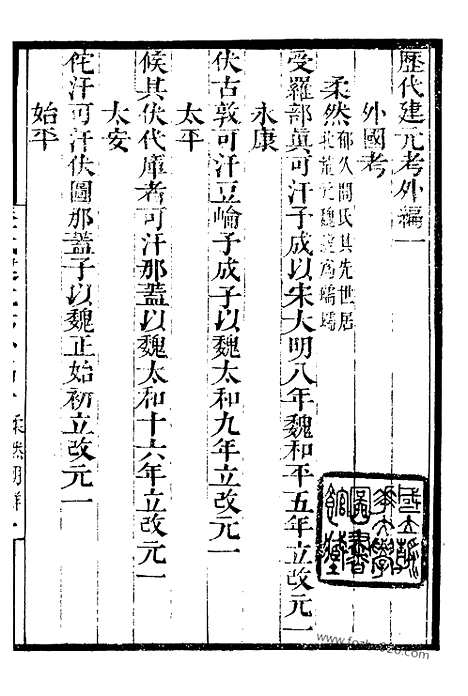 歷代建元考外編一
外國考
柔然郁久閭氏其先世居
北荒元魏號爲蠕蠕
受羅部眞可汗子成以宋大明八年魏和平五年立改元一
永康
伏古敦可汗豆崘子成子以魏太和九年立改元一
太平
候其伏代庫者可汗那蓋以魏太和十六年立改元一
太安
佗汗可汗伏圖那蓋子以魏正始初立改元一
始平
柔然